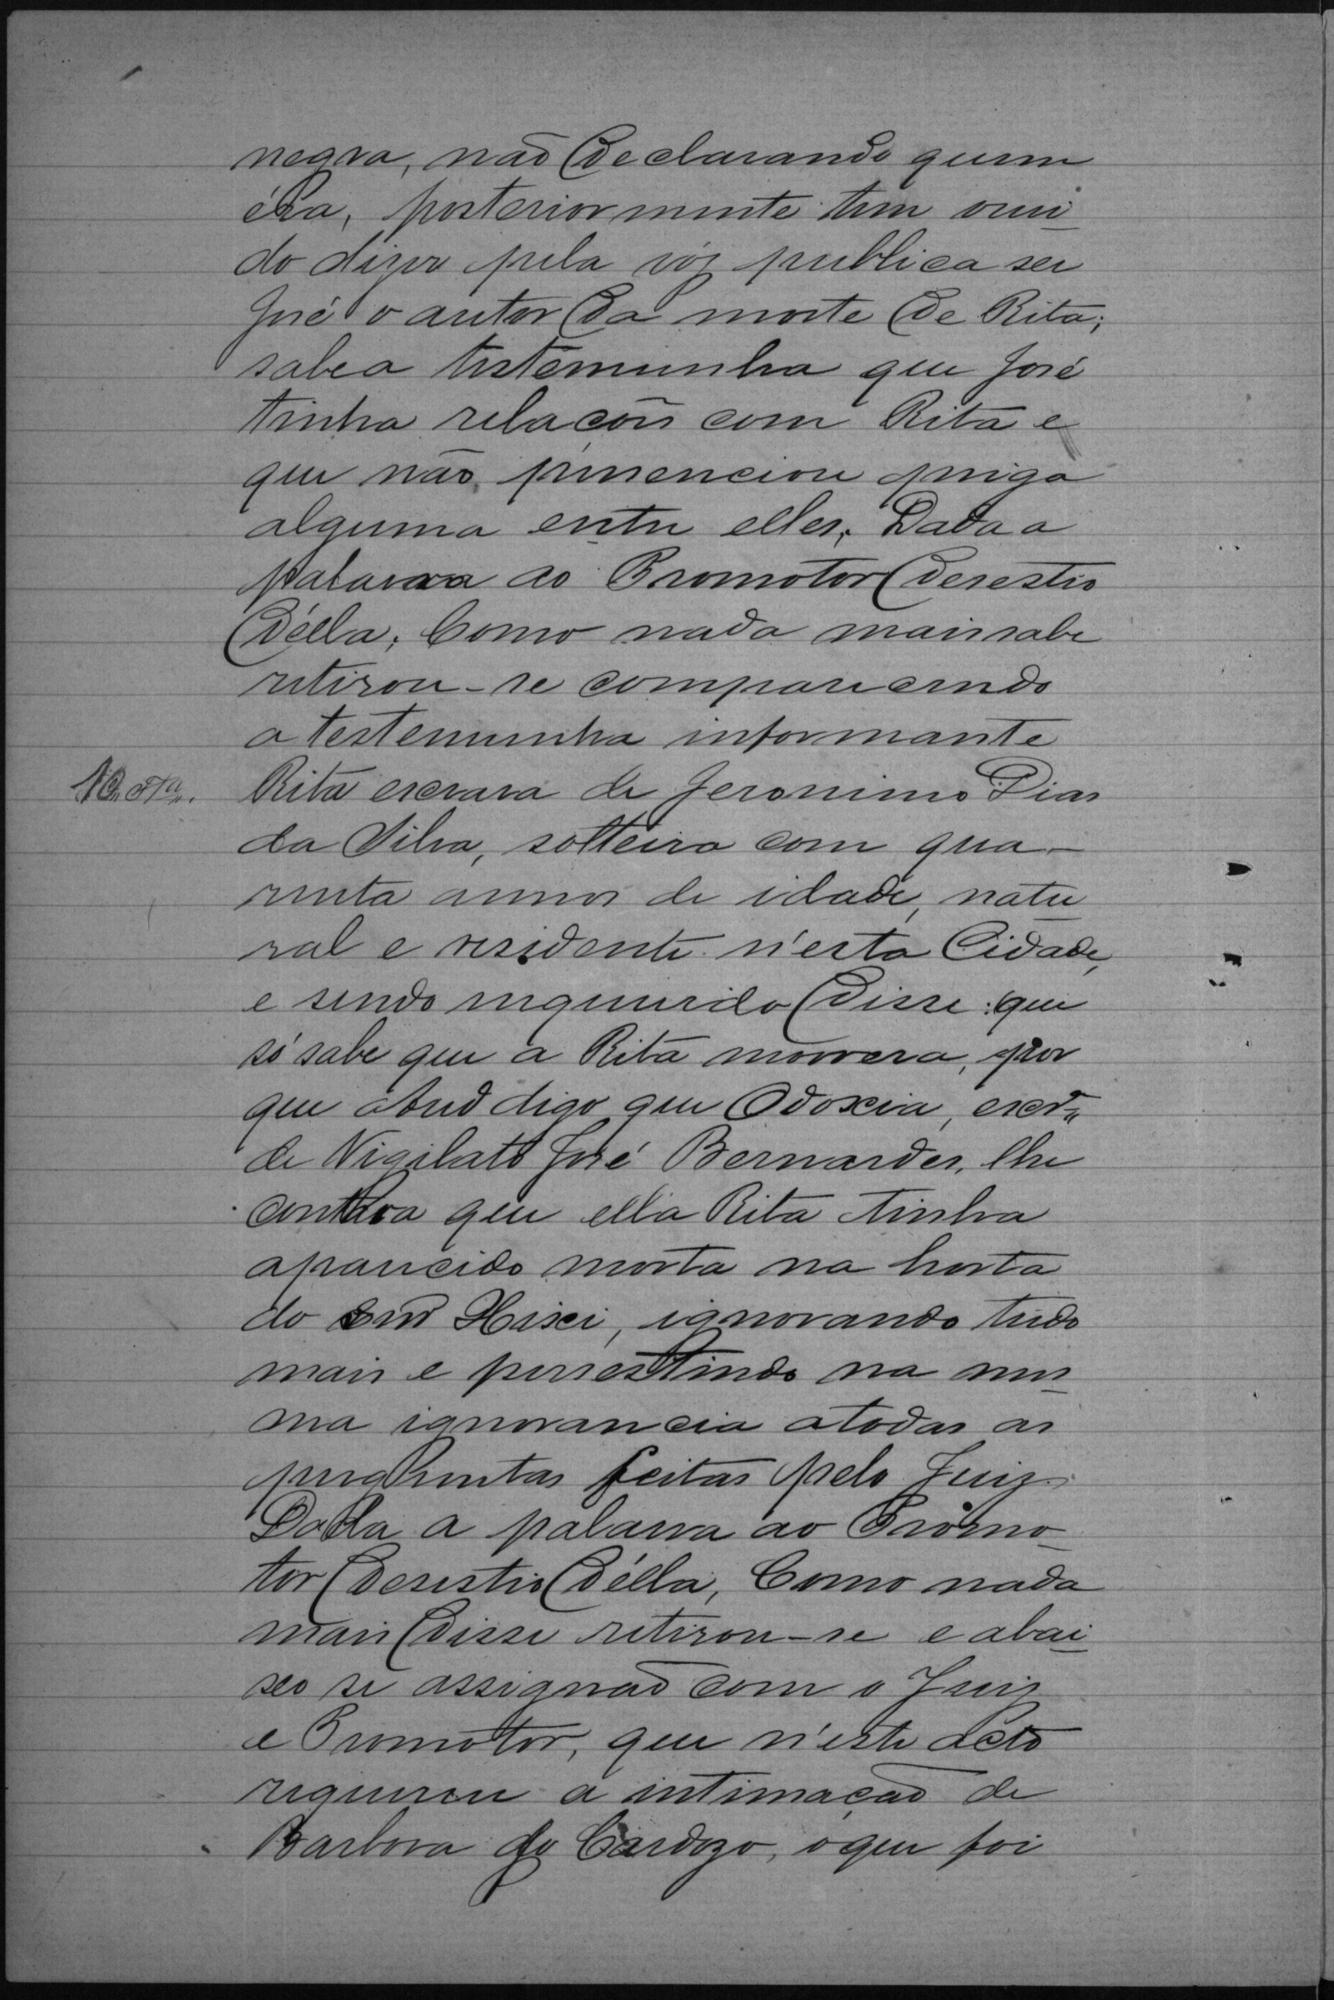 negra, não declarando quem
éra, posteriormente tem ouvi
do dizer pela vóz publica ser
José o autor da morte de Rita;
sabe a testemunha que José
tinha relacões com Rita e
que não presenciou briga
alguma entre elles; Dada a
palavra ao Promotor desestio
délla; Como nada mais sabe
retirou-se comparecendo
a testemunha informante
10 Ta. Rita escrava de Jeronimo Dias
da Silva, solteira com qua-
renta annos de idade, natu
ral e residente n'esta Cidade,
e sendo inquerida disse: que
só sabe que a Rita morrera, por
que digo que Odoxia, escr.a
de Vigilato José Bernardes, lhe
contara que ella Rita tinha
aparecido morta na horta
do snr Xixi, ignorando tudo
mais e persestindo na mes
ma ignorancia a todas as
preguntas feitas pelo Juiz.
Dada a palavra ao Promo
tor desestio délla, Como nada
mais disse retirou-se e abai
xo se assignão com o Juiz
e Promotor, que n'este acto
requereu a intimação de
Barbora do Cardozo, o que foi